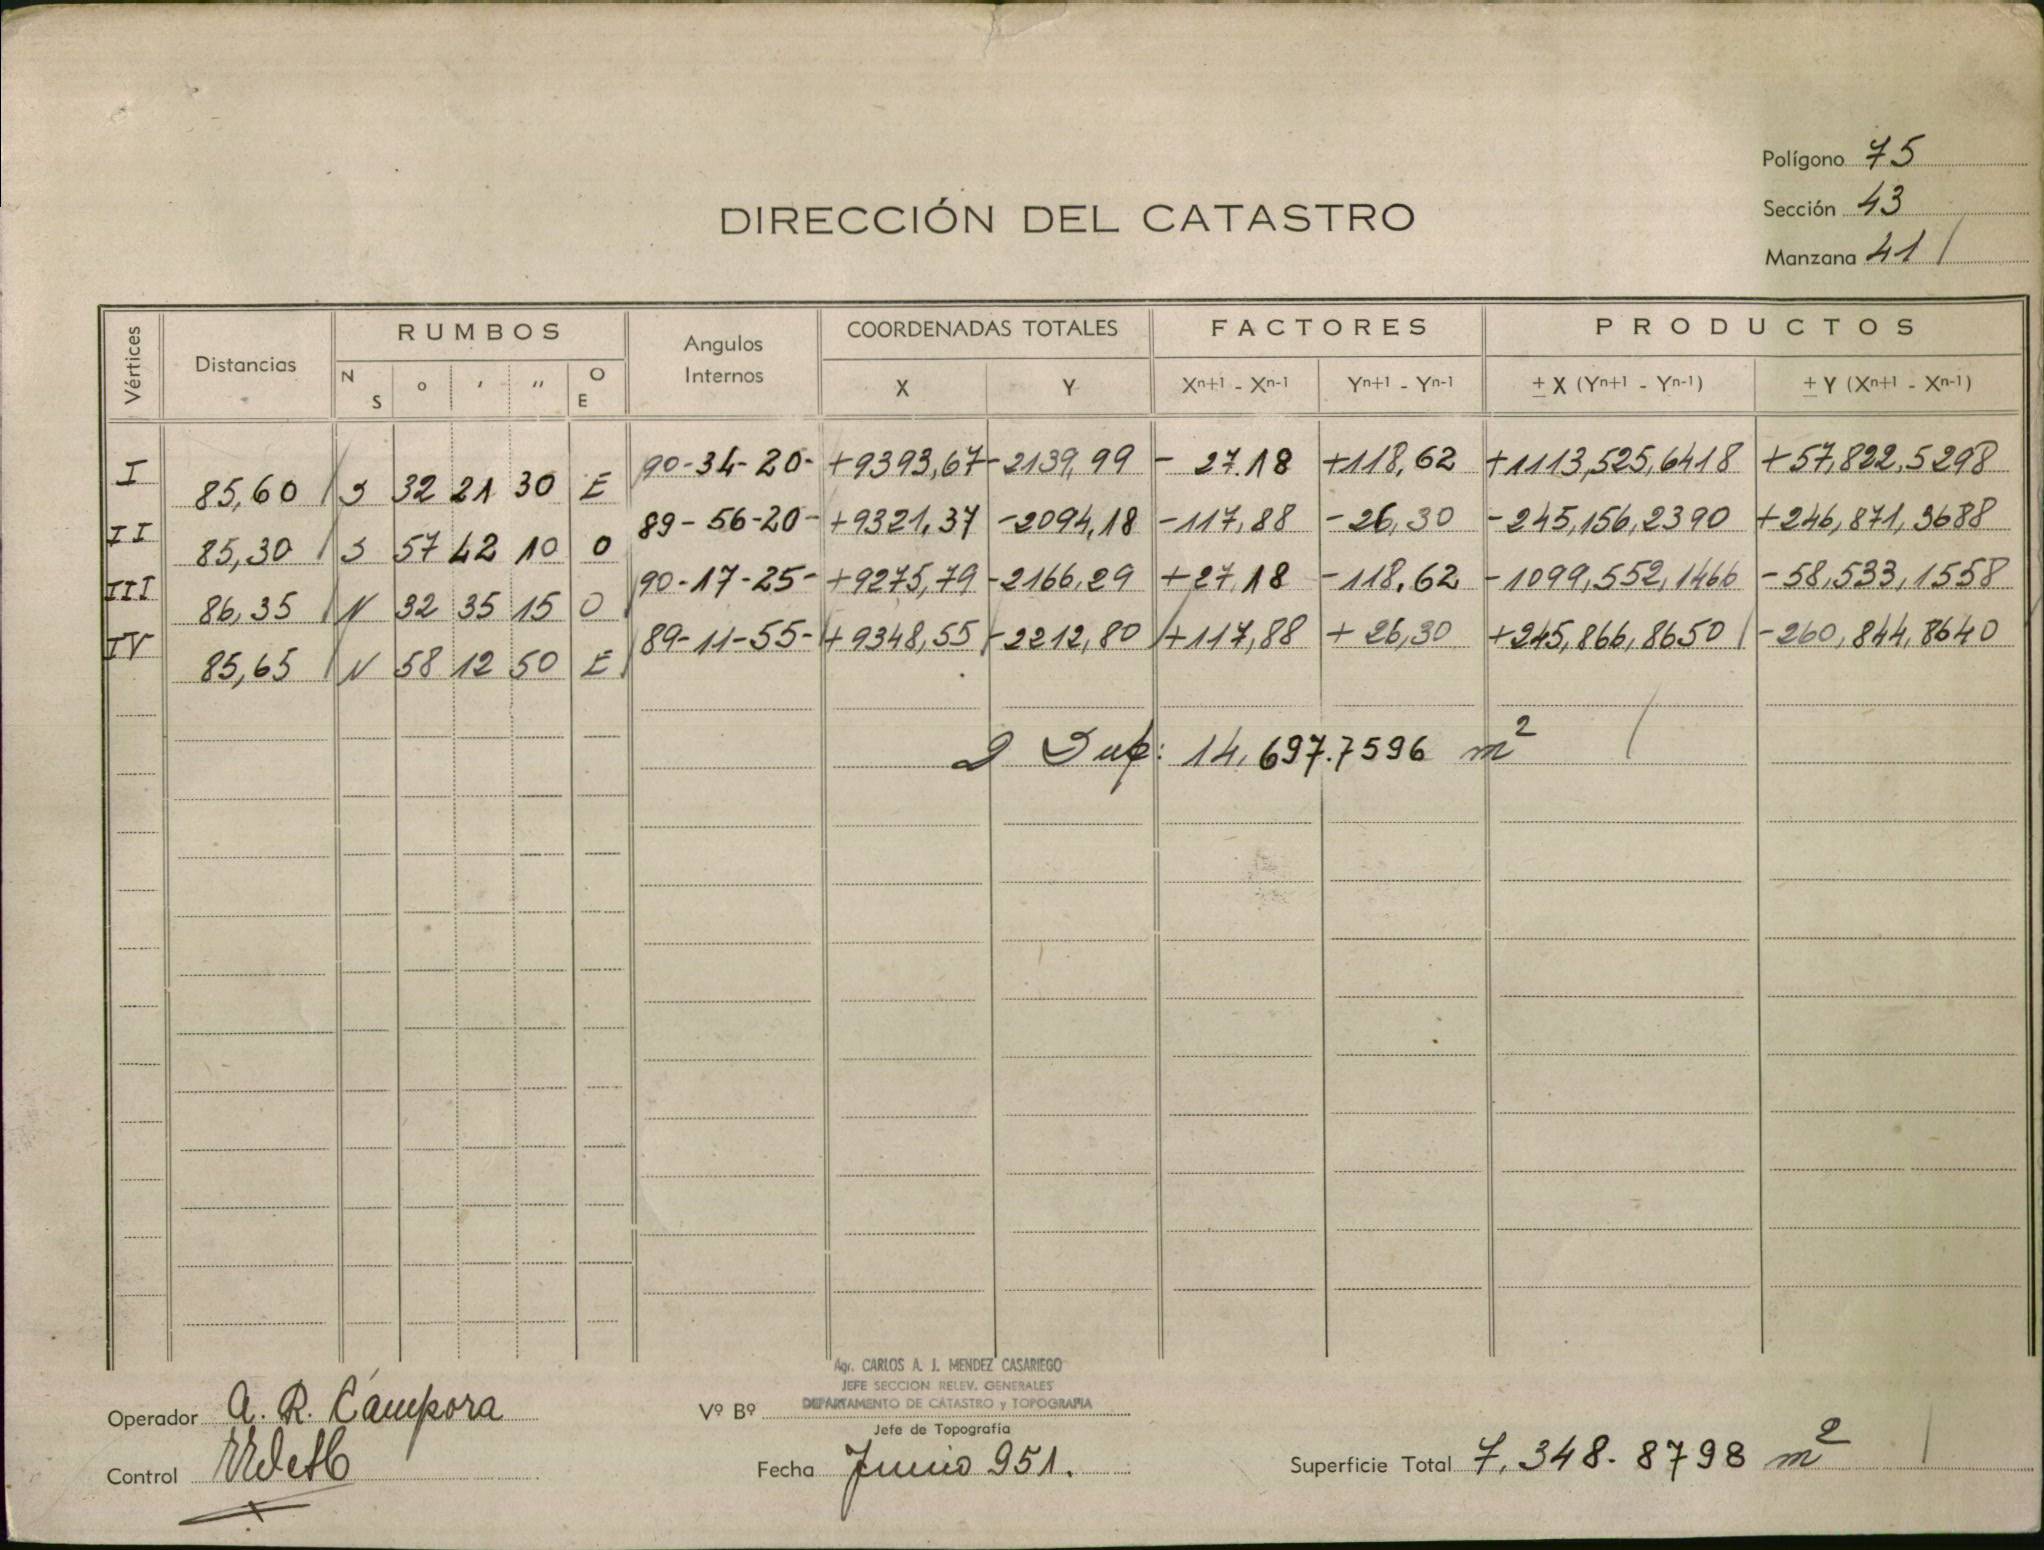 Polígono 75
Sección 43
Manzana 41
DIRECCIÓN DEL CATASTRO
Vértices Distancias RUMBOS Angulos Internos COORDENADAS TOTALES FACTORES PRODUCTOS
N S ° ' '' O E X Y Xn+1 - Xn-1 Yn+1 - Yn-1 ± X (Yn+1 - Yn-1) ± Y (Xn+1 - Xn-1)
I 90-34-20- +9393,67 -2139,99 - 27.18 +118,62 +1113,525,6418 +57,822,5298
85,60 S 32 21 30 E
II 89-56-20- +9321,37 -2094,18 -117,88 -26,30 -245,156,2390 +246,871,3688
85,30 S 57 42 10 O
III 90-17-25- +9275,79 -2166,29 +27,18 -118,62 -1099,552,1466 -58,533,1558
86,35 N 32 35 15 O
IV 89-11-55- +9348,55 -2212,80 +117,88 +26,30 +245,866,8650 -260,844,8640
85,65 N 58 12 50 E
2 Sup: 14.697.7596 m²
Agr. CARLOS A. J. MENDEZ CASARIEGO
JEFE SECCION RELEV. GENERALES
DEPARTAMENTO DE CATASTRO y TOPOGRAFIA
Operador A. R. Cámpora Vº Bº
Jefe de Topografía
Control Fecha Junio 951. Superficie Total 7.348.8798 m²